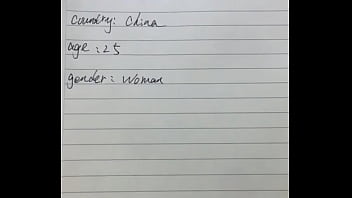 country: China
age: 25
gender: Woman